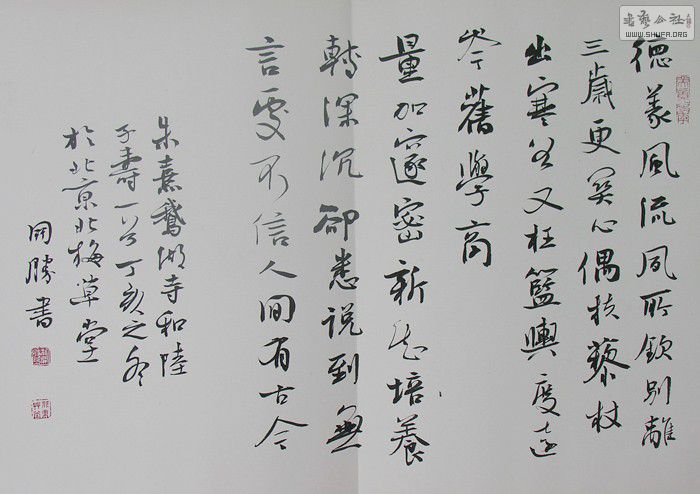 德義風流夙所欽別離
三歲更關心偶扶藜杖
出寒谷又枉籃輿度遠
岑舊學商
量加邃密新知培養
轉深沉卻愁说到無
言處不信人間有古今
朱熹鵝湖寺和陸
子壽一首丁亥之冬
於北京北梅草堂
勝書
書藝公社
WWW.SHUFA.ORG